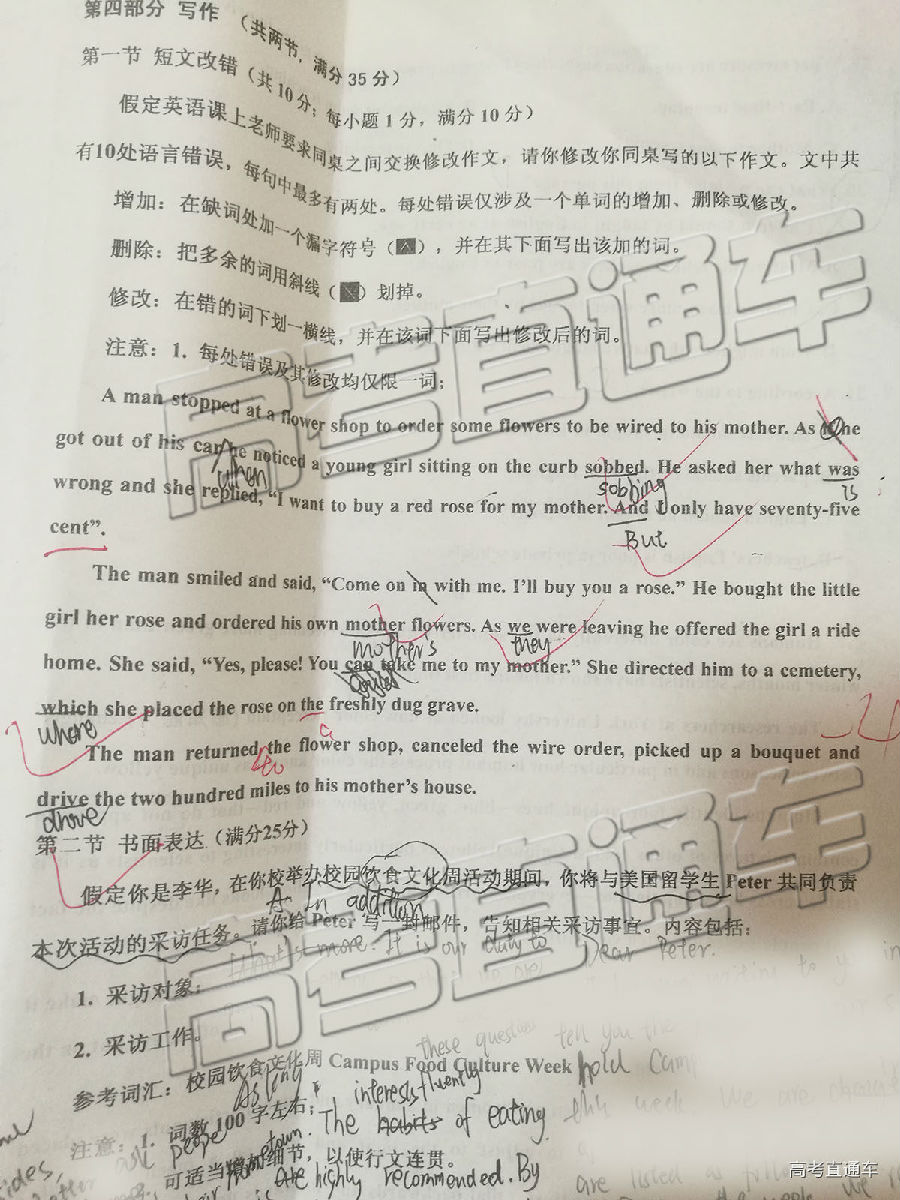 第四部分 写作 （共两节，满分35分）
第一节 短文改错（共10分；每小题1分，满分10分）
假定英语课上老师要求同桌之间交换修改作文，请你修改你同桌写的以下作文。文中共
有10处语言错误，每句中最多有两处。每处错误仅涉及一个单词的增加、删除或修改。
增加：在缺词处加一个漏字符号（∧），并在其下面写出该加的词。
删除：把多余的词用斜线（）划掉。
修改：在错的词下划一横线，并在该词下面写出修改后的词。
注意：1. 每处错误及其修改均仅限一词；
A man stopped at a flower shop to order some flowers to be wired to his mother. As he
got out of his car he noticed a young girl sitting on the curb sobbed. He asked her what was
when
sobbing
is
wrong and she replied, “I want to buy a red rose for my mother. And I only have seventy-five
But
cent”.
The man smiled and said, “Come on in with me. I’ll buy you a rose.” He bought the little
girl her rose and ordered his own mother flowers. As we were leaving he offered the girl a ride
mother's
they
home. She said, “Yes, please! You can take me to my mother.” She directed him to a cemetery,
could
which she placed the rose on the freshly dug grave.
where
a
The man returned the flower shop, canceled the wire order, picked up a bouquet and
to
drive the two hundred miles to his mother’s house.
drove
第二节 书面表达（满分25分）
假定你是李华，在你校举办校园饮食文化周活动期间，你将与美国留学生 Peter 共同负责
In addition
本次活动的采访任务。请你给 Peter 写一封邮件，告知相关采访事宜。内容包括：
What's more. It is our duty to
Dear Peter.
1. 采访对象；
2. 采访工作。
these question tell you the
参考词汇：校园饮食文化周 Campus Food Culture Week
hold Cam
As long
interests fluently
注意：1. 词数100字左右；
The habits of eating
this week We are
people
town.
可适当增加细节，以使行文连贯。
are highly recommended. By
are listed as follow
高考直通车
高考直通车
高考直通车